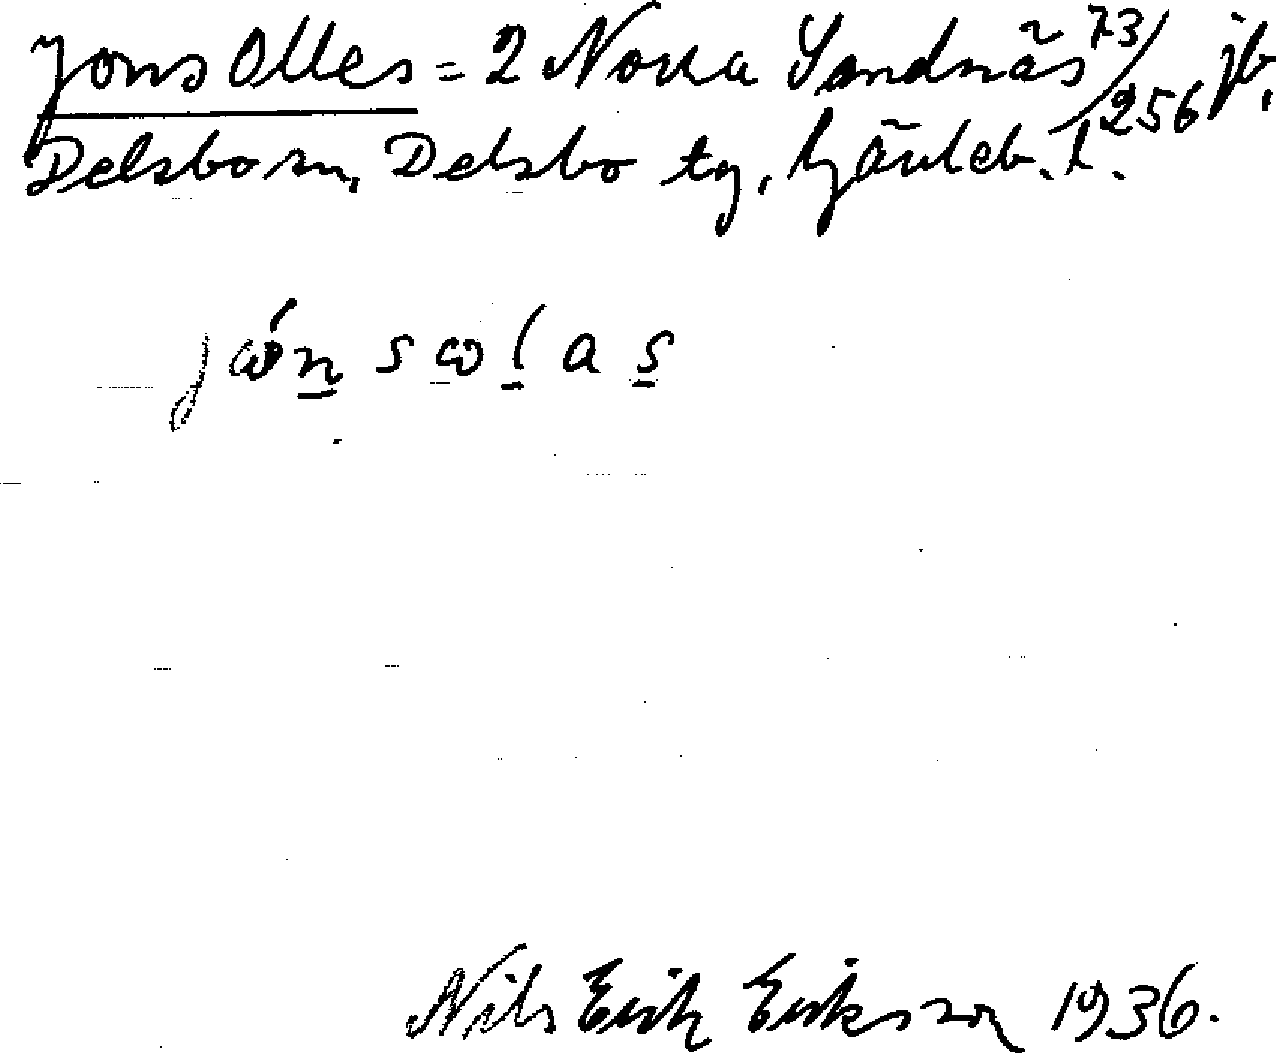 Jons Olles = 2 Norra Sandnäs 73/256 jb,
Delsbo sn, Delsbo tg, Gävleb. l.
jώn sωlas
Nils Erik Eriksson 1936.